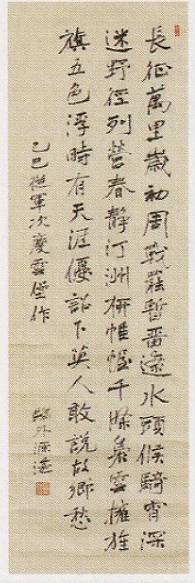 長征萬里歲初周戰罷暫留遼水頭候騎宵深
迷野徑列營春靜汀洲帷幄千條裊雲擁旌
旗五色浮時有天涯優詔下無人敢說故鄉愁
乙巳從軍次慶雲堡作
鷗外源湛